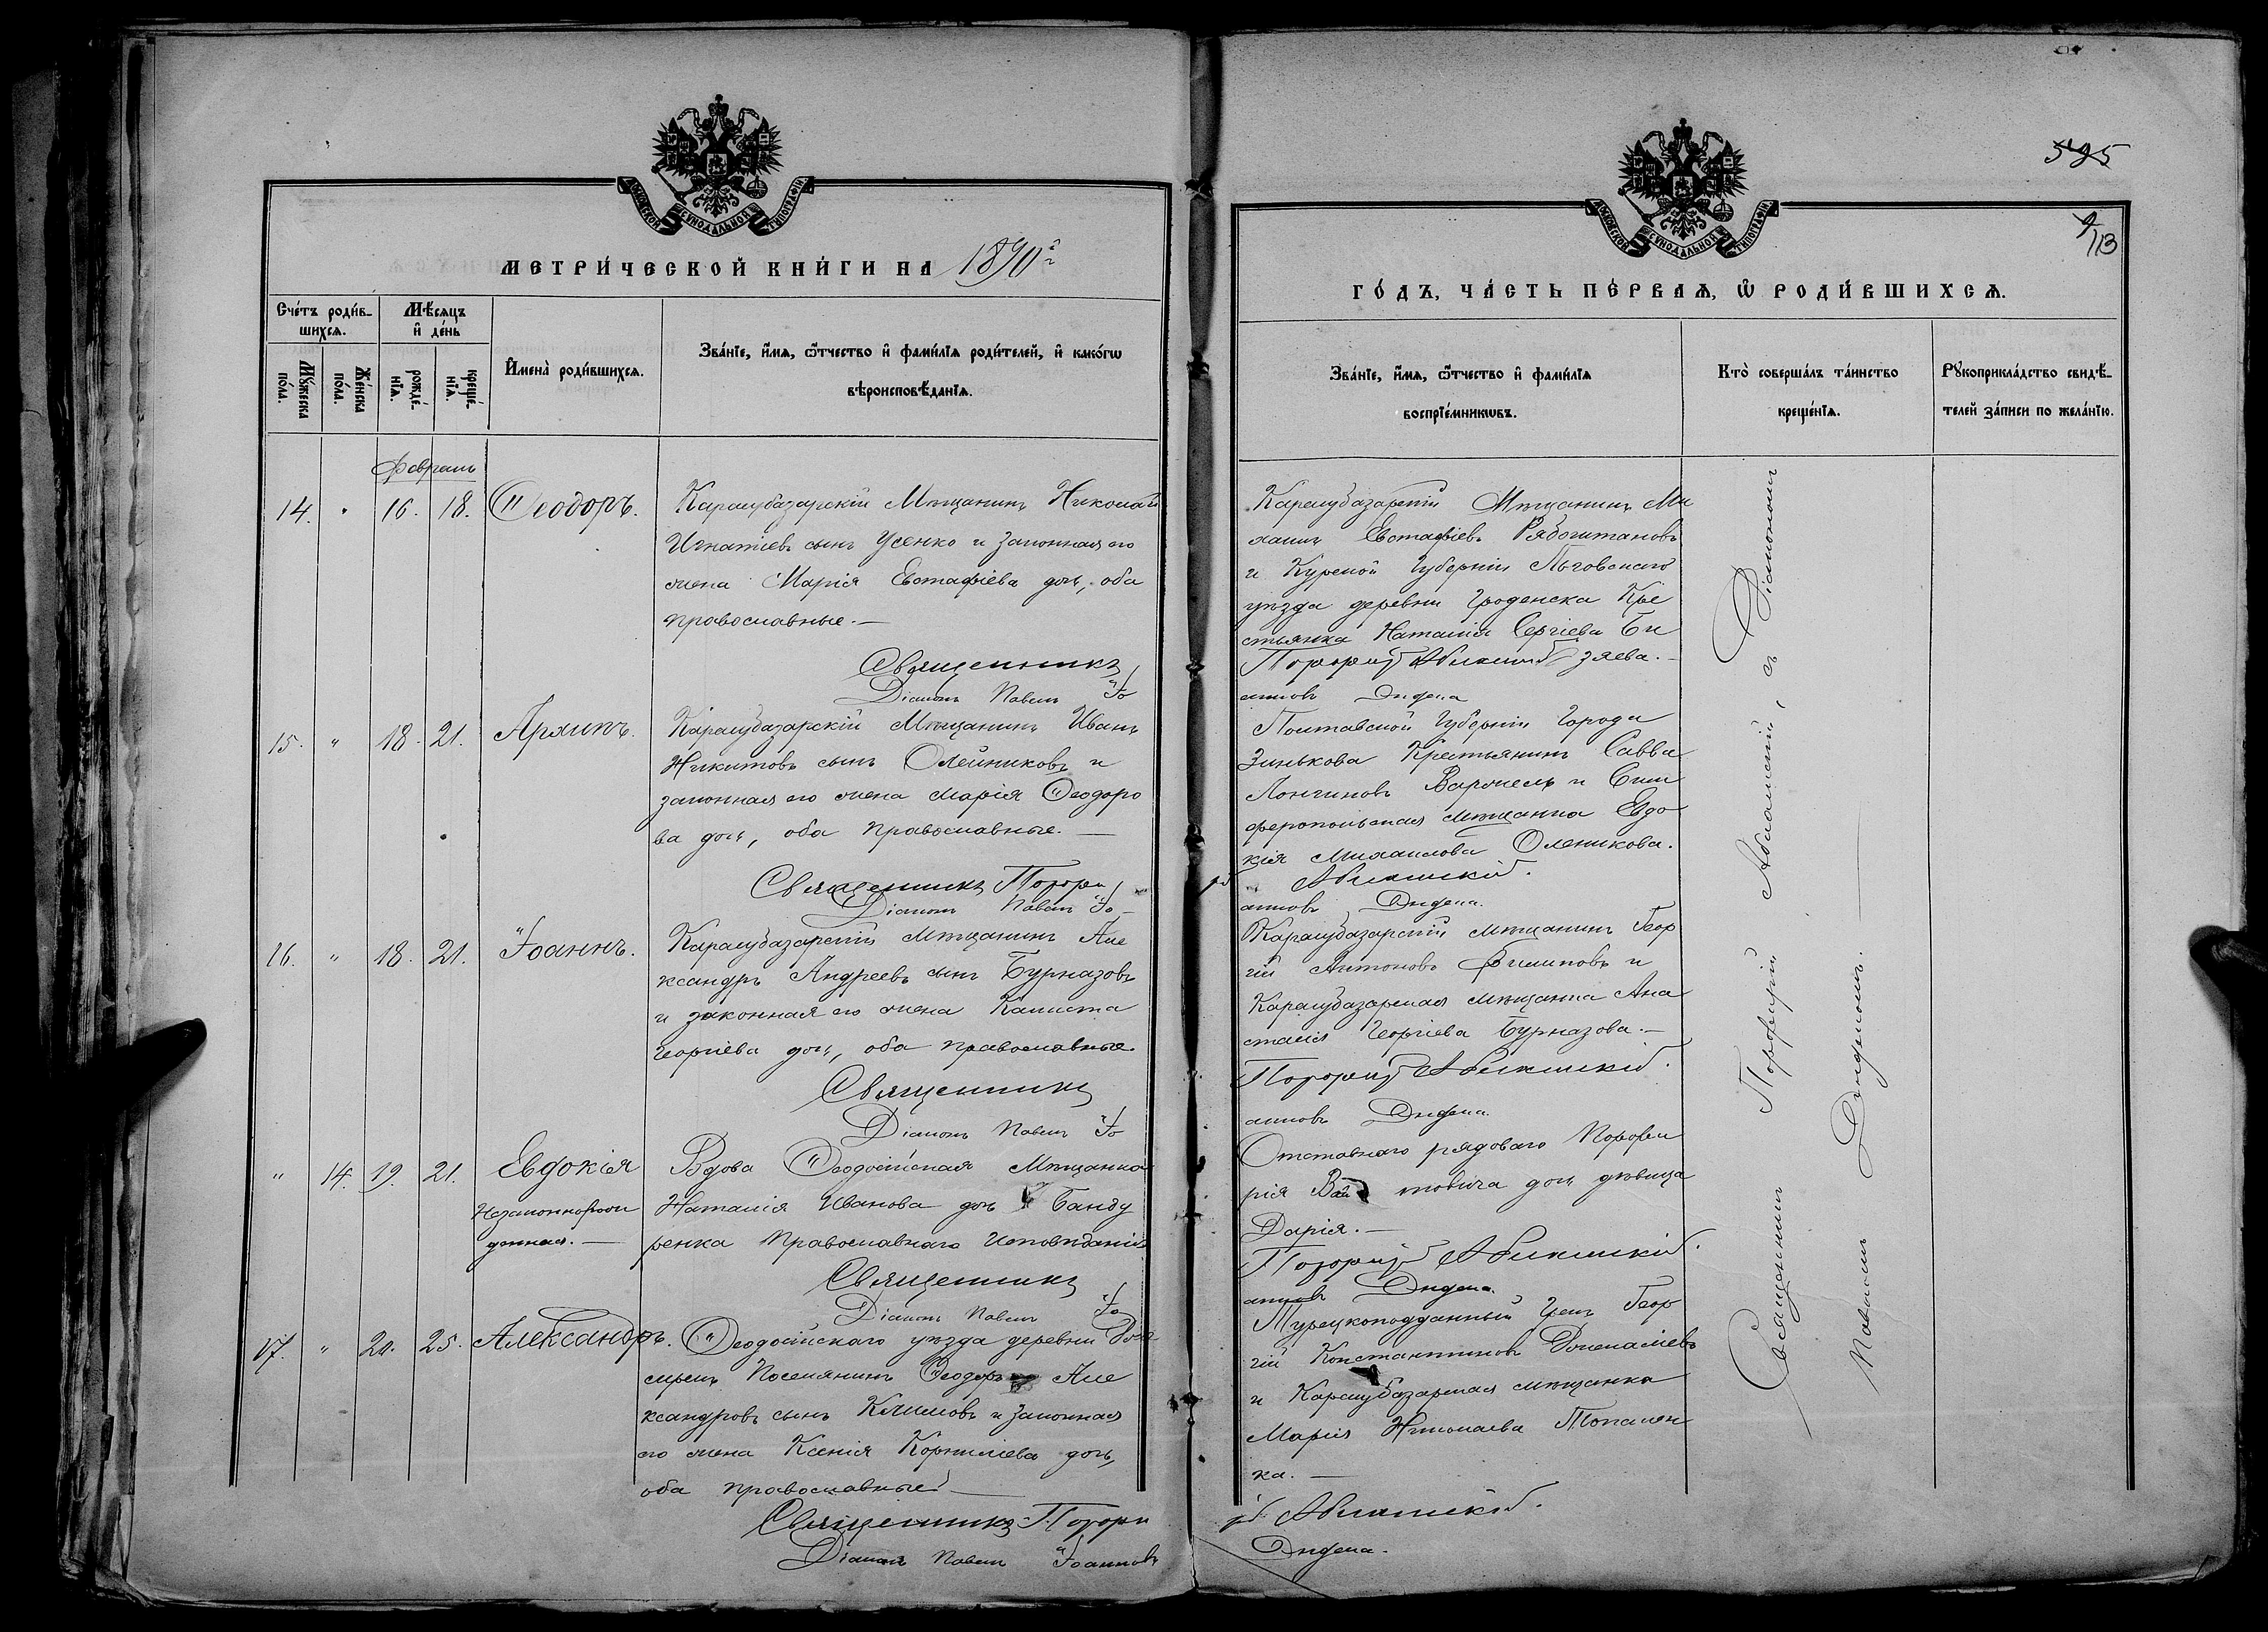 МОСКОВСКОЙ СѴНОДАЛЬНОЙ ТИПОГРАФІИ
МЕТРИ́ЧЕСКОЙ КНИ́ГИ НА 1890й
Сче́тъ роди́в-
шихсѧ.
Мѣ́сѧцъ
и҆ де́нь
И҆мена̀ роди́вшихсѧ.
Зва́нїе, и҆́мѧ, ѻ҆́тчество и҆ фами́лїѧ роди́телей, и҆ како́гѡ
вѣроисповѣ́данїѧ.
Мꙋ́жеска
по́ла.
Же́нска
по́ла.
рожде́-
нїѧ.
креще́-
нїѧ.
Февраль
14. " 16. 18. Ѳеодоръ.
Карасубазарскій Мѣщанинъ Николай
Игнатіевъ сынъ Усенко и законная его
жена Марія Евстафіева дочь, оба
православные. —
Священникъ
Діаконъ Павелъ Іо
15. " 18. 21. Архипъ.
Карасубазарскій Мѣщанинъ Иванъ
Никитовъ сынъ Олейниковъ и
законная его жена Марія Ѳеодоро
ва дочь, оба православные. —
Священникъ Порфи
Діаконъ Павелъ Іо
16. " 18. 21. Іоаннъ.
Карасубазарскій мѣщанинъ Але
ксандръ Андреевъ сынъ Бурназовъ
и законная его жена Калиста
Георгіева дочь, оба православные.
Священникъ
Діаконъ Павелъ Іо
" 14. 19. 21. Евдокія
Незаконнорож
денная. —
Вдова Ѳеодосійская Мѣщанка
Наталія Иванова дочь Банду
ренка Православнаго Исповѣданія
Священникъ
Діаконъ Павелъ Іо
17. " 20. 25. Александръ.
Ѳеодосійскаго уѣзда деревни
Поселянинъ Ѳеодоръ Але
ксандровъ сынъ Климовъ и законная
его жена Ксенія Корниліева дочь,
оба православные. —
Священникъ Порфи
Діаконъ Павелъ Іоанновъ
595
113
МОСКОВСКОЙ СѴНОДАЛЬНОЙ ТИПОГРАФІИ
ГО́ДЪ, ЧА́СТЬ ПЕ́РВАѦ, Ѡ҆ РОДИ́ВШИХСѦ.
Зва́нїе, и҆́мѧ, ѻ҆́тчество и҆ фами́лїѧ
воспрїе́мникѡвъ.
Кто̀ соверша́лъ та́инство
креще́нїѧ.
Рꙋкоприкла́дство свидѣ́-
телей за́писи по жела́нїю.
Карасубазарскій Мѣщанинъ Ми
хаилъ Евстафіевъ Рябоштановъ
и Курской Губерніи Льговскаго
уѣзда деревни Гроденска Кре
стьянка Наталія Сергіева Би
Порфирій Абламскій зяева. —
анновъ Дидена
Полтавской Губерніи Города
Зинькова Крестьянинъ Савва
Логгиновъ и Сим
феропольская мѣщанка Евдо
кія Михаилова Оленикова.
рій Абламскій.
анновъ Дидена.
Карасубазарскій мѣщанинъ Геор
гій Антоновъ Филиповъ и
Карасубазарская мѣщанка Ана
стасія Георгіева Бурназова. —
Порфирій Абламскій.
анновъ Дидена.
Отставнаго рядоваго Порфи
рія товича дочь дѣвица
Дарія. —
Порфирій Абламскій.
анновъ Дидена.
Турецкоподданный Грекъ Геор
гій Константиновъ
и Карасубазарская мѣщанка
Марія Николаева Топален
ка. —
рій Абламскій.
Дидена.
Священникъ Порфирій Абламскій, съ Діакономъ
Павломъ Дидиномъ. —